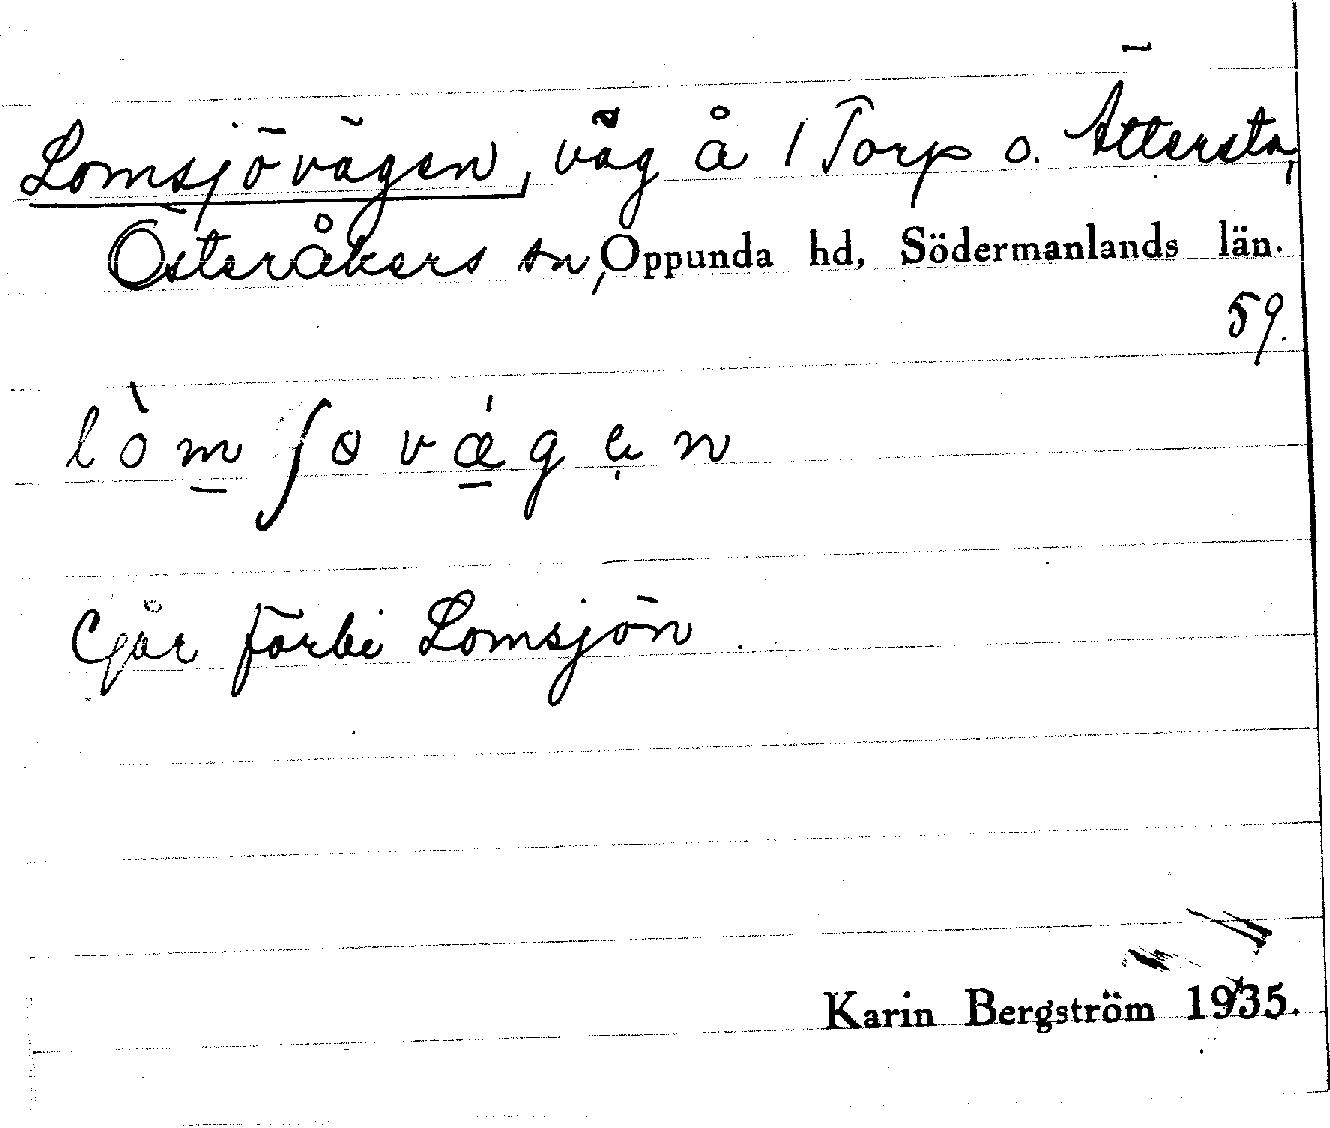 Lomsjövägen, väg å 1 Torp o. Ättersta,
Österåkers sn, Oppunda hd, Södermanlands län.
59.
lòm ʃɵvǽgẹn
Går förbi Lomsjön.
Karin Bergström 1935.